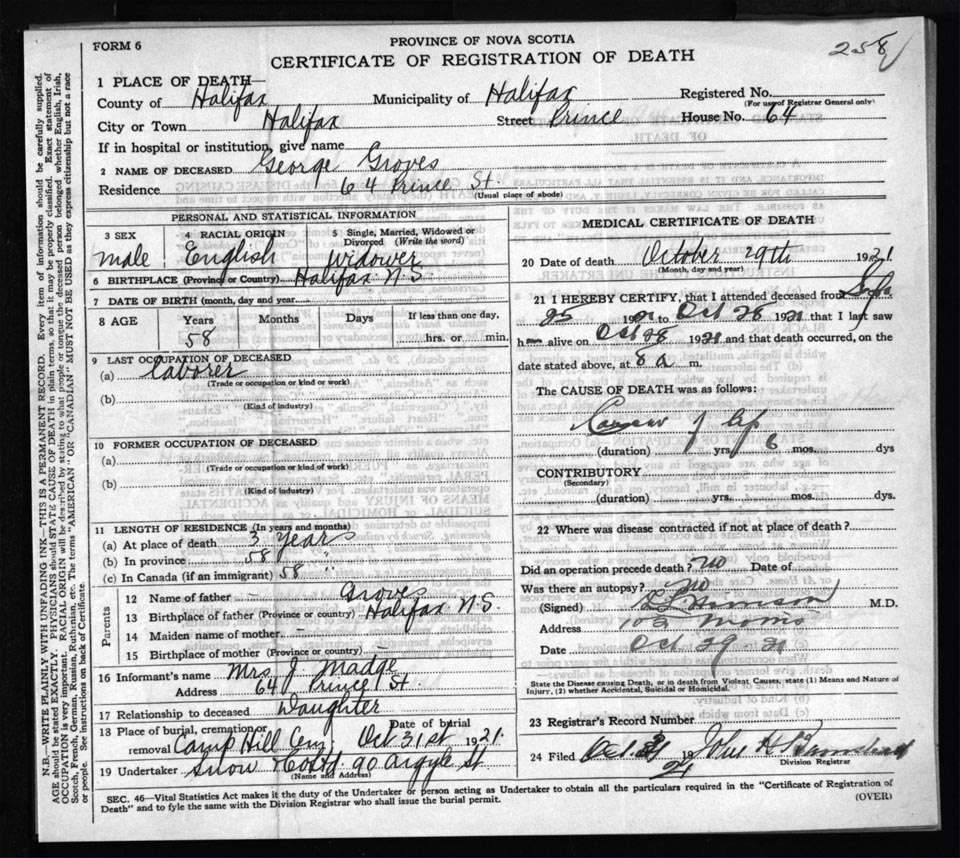 258
FORM 6
PROVINCE OF NOVA SCOTIA
CERTIFICATE OF REGISTRATION OF DEATH
1 PLACE OF DEATH—
County of Halifax Municipality of Halifax Registered No.
(For use of Registrar General only)
City or Town Halifax Street Prince House No. 64
If in hospital or institution, give name
2 NAME OF DECEASED George Groves
Residence 64 Prince St.
(Usual place of abode)
PERSONAL AND STATISTICAL INFORMATION
3 SEX 4 RACIAL ORIGIN 5 Single, Married, Widowed or Divorced (Write the word)
male English widower
6 BIRTHPLACE (Province or Country) Halifax N.S.
7 DATE OF BIRTH (month, day and year)
8 AGE Years Months Days If less than one day,
58 hrs. or min.
9 LAST OCCUPATION OF DECEASED
(a) laborer
(Trade or occupation or kind or work)
(b)
(Kind of industry)
10 FORMER OCCUPATION OF DECEASED
(a)
(Trade or occupation or kind or work)
(b)
(Kind of industry)
11 LENGTH OF RESIDENCE (In years and months)
(a) At place of death 3 years
(b) In province 58 "
(c) In Canada (if an immigrant) 58 "
Parents
12 Name of father - Groves
13 Birthplace of father (Province or country) Halifax N.S.
14 Maiden name of mother -
15 Birthplace of mother (Province or country) -
16 Informant's name Mrs J. Madge
Address 64 Prince St.
17 Relationship to deceased Daughter
18 Place of burial, cremation or removal Camp Hill Cem. Date of burial Oct 31st 1921.
19 Undertaker Snow & Co Ltd. 90 Argyle St
(Name and Address)
MEDICAL CERTIFICATE OF DEATH
20 Date of death October 29th 1921
(Month, day and year)
21 I HEREBY CERTIFY, that I attended deceased from Sept
25 1921 to Oct 28 1921 that I last saw
h alive on Oct 28 1921 and that death occurred, on the
date stated above, at 8 a m.
The CAUSE OF DEATH was as follows:
Cancer of lip
(duration) yrs. 6 mos. dys
CONTRIBUTORY
(Secondary)
(duration) yrs. mos. dys.
22 Where was disease contracted if not at place of death?
Did an operation precede death? no Date of
Was there an autopsy? no
(Signed) M.D.
Address 102 Morris
Date Oct 29 21
State the Disease causing Death, or in death from Violent Causes, state (1) Means and Nature of
Injury, (2) whether Accidental, Suicidal or Homicidal.
23 Registrar's Record Number
24 Filed Oct. 31 19 21 John
Division Registrar
SEC. 46—Vital Statistics Act makes it the duty of the Undertaker or person acting as Undertaker to obtain all the particulars required in the "Certificate of Registration of
Death" and to fyle the same with the Division Registrar who shall issue the burial permit.
(OVER)
N.B.—WRITE PLAINLY WITH UNFADING INK—THIS IS A PERMANENT RECORD. Every item of information should be carefully supplied.
AGE should be stated EXACTLY. PHYSICIANS should STATE CAUSE OF DEATH in plain terms, so that it may be properly classified. Exact statement of
OCCUPATION is very important. RACIAL ORIGIN will be described by stating to what people or tongue the deceased person belonged, whether English, Irish,
Scotch, French, German, Russian, Ruthenian, etc. The terms "AMERICAN" or "CANADIAN" MUST NOT BE USED as they express citizenship but not a race
or people. See instructions on back of Certificate.